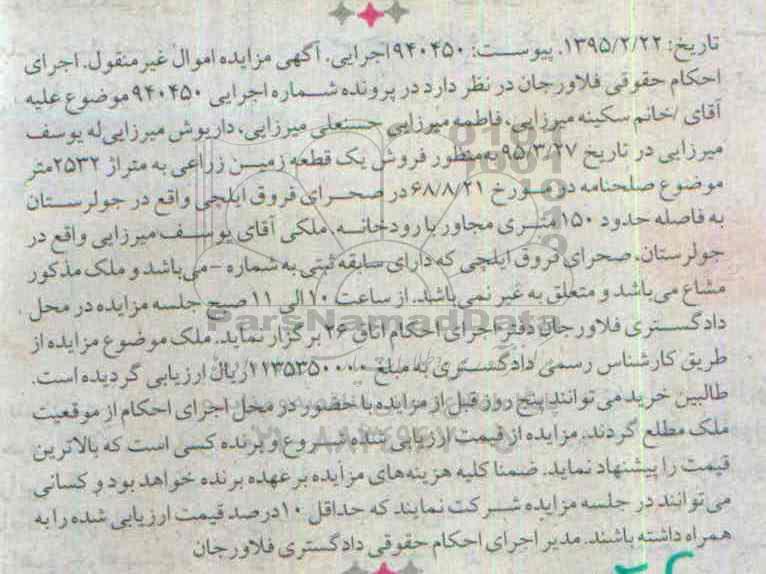 تاریخ: ۱۳۹۵/۲/۲۲. پیوست: ۹۴۰۴۵۰ اجرایی. آگهی مزایده اموال غیرمنقول. اجرای
احکام حقوقی فلاورجان در نظر دارد در پرونده شماره اجرایی ۹۴۰۴۵۰ موضوع علیه
آقای /خانم سکینه میرزایی، فاطمه میرزایی حسنعلی میرزایی، داریوش میرزایی له یوسف
میرزایی در تاریخ ۹۵/۳/۲۷ به منظور فروش یک قطعه زمین زراعی به متراژ ۲۵۳۲متر
موضوع صلحنامه در مورخ ۶۸/۸/۲۱ در صحرای فروق ایلچی واقع در جولرستان
به فاصله حدود ۱۵۰ متری مجاور با رودخانه، ملکی آقای یوسف میرزایی واقع در
جولرستان، صحرای فروق ایلچی که دارای سابقه ثبتی به شماره -می‌باشد و ملک مذکور
مشاع می‌باشد و متعلق به غیر نمی‌باشد. از ساعت ۱۰ الی ۱۱ صبح جلسه مزایده در محل
دادگستری فلاورجان دفتر اجرای احکام اتاق ۲۶ برگزار نماید. ملک موضوع مزایده از
طریق کارشناس رسمی دادگستری به مبلغ ریال ارزیابی گردیده است.
طالبین خرید می‌توانند پنج روز قبل از مزایده با حضور در محل اجرای احکام از موقعیت
ملک مطلع گردند. مزایده از قیمت ارزیابی شده شروع و برنده کسی است که بالاترین
قیمت را پیشنهاد نماید. ضمنا کلیه هزینه‌های مزایده بر عهده برنده خواهد بود و کسانی
می‌توانند در جلسه مزایده شرکت نمایند که حداقل ۱۰درصد قیمت ارزیابی شده را به
همراه داشته باشند. مدیر اجرای احکام حقوقی دادگستری فلاورجان
ParsNamadData